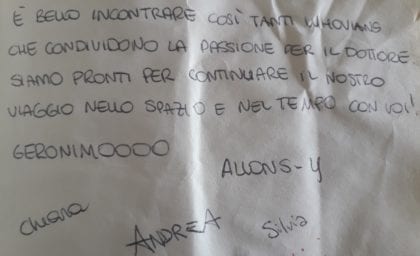 È BELLO INCONTRARE COSÌ TANTI WHOVIANS
CHE CONDIVIDONO LA PASSIONE PER IL DOTTORE
SIAMO PRONTI PER CONTINUARE IL NOSTRO
VIAGGIO NELLO SPAZIO E NEL TEMPO CON VOI!
GERONIMOOOO
ALLONS-Y
Chiara ANDREA Silvia